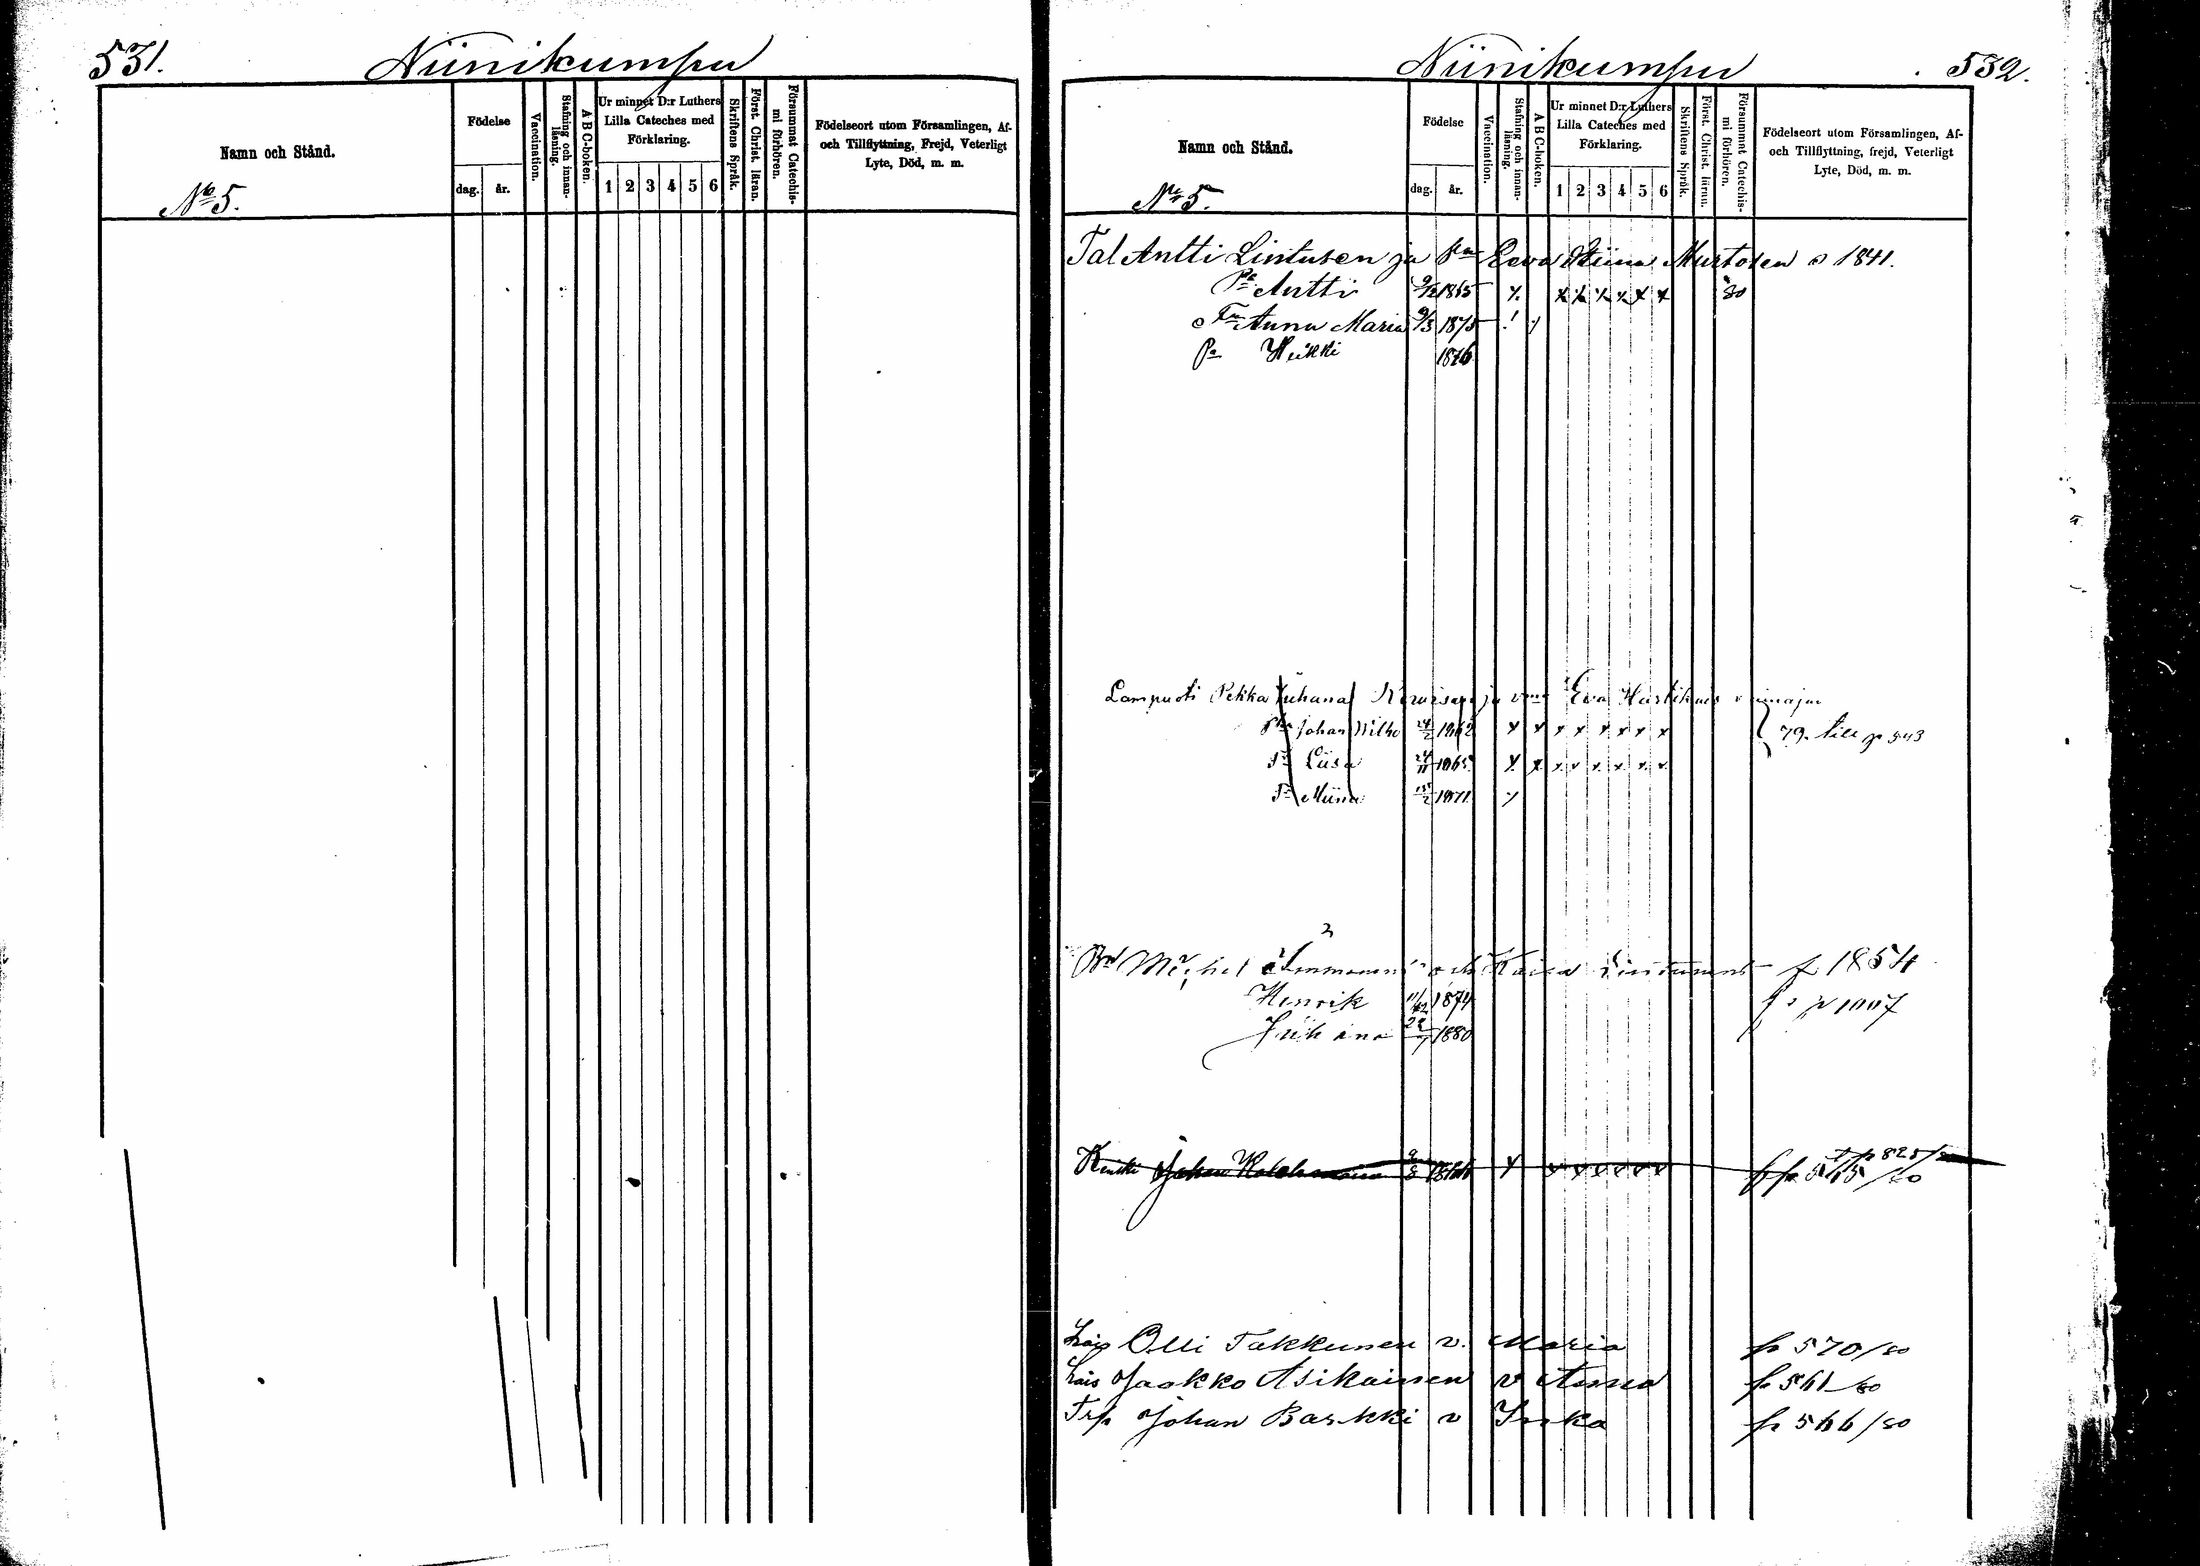 531. Niinikumpu
Namn och Stånd.
No 5.
Födelse
dag. år.
Vaccination.
Stafning och innan-
läsning.
A B C-boken.
Ur minnet D:r Luthers
Lilla Cateches med
Förklaring.
1 2 3 4 5 6
Skriftens Språk.
Först. Christ. läran.
Försummat Catechis-
mi förhören.
Födelseort utom Församlingen, Af-
och Tillflyttning, Frejd, Veterligt
Lyte, Död, m. m.
Niinikumpu 532.
Namn och Stånd.
No 5.
Födelse
dag. år.
Vaccination.
Stafning och innan-
läsning.
A B C-boken.
Ur minnet D:r Luthers
Lilla Cateches med
Förklaring.
1 2 3 4 5 6
Skriftens Språk.
Först. Christ. läran.
Försummat Catechis-
mi förhören.
Födelseort utom Församlingen, Af-
och Tillflyttning, frejd, Veterligt
Lyte, Död, m. m.
Tal Antti Lintusen ja Eeva Stiina Murtosen s 1841.
Pa Antti 1865 x x x x x x 80
Tr Anna Maria 9/3 1875
Pa Heikki 1876
Pekka Juhana ja Eva
Johan Wilho 24/2 1862 x x x x x x x x 79. till p 543
Tr Liisa 24/11 1865 x x x x x x x x
Tr Miina 15/2 1871
Michel Immonens och Kaisa p 1854
Henrik 11/12 1874 p 1007
Juhana 1880
Johan x x x x x x x p 825
Lois Olli Takkunen v. Maria p 570/80
Lois Jaakko Asikainen v Anna p 561/80
Trp Johan Barkki v Inka p 566/80